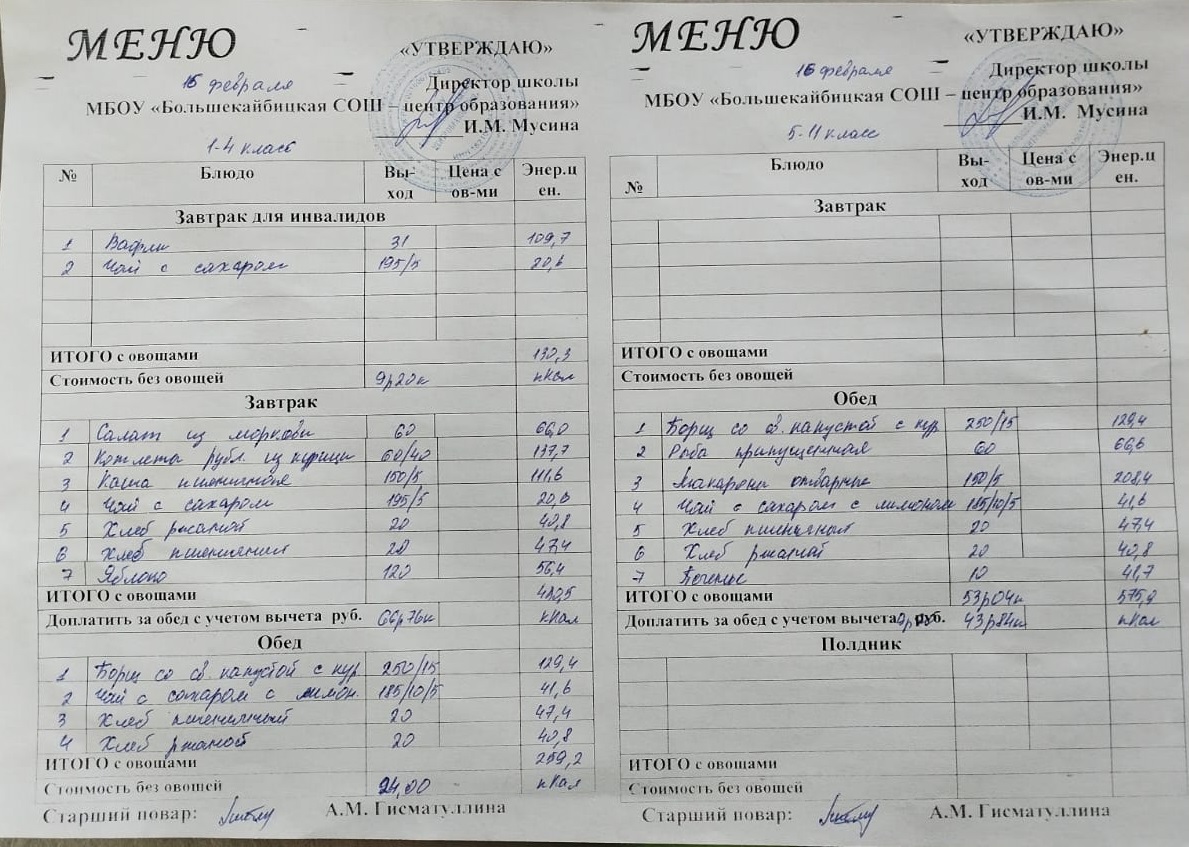 МЕНЮ
«УТВЕРЖДАЮ»
16 февраля
Директор школы
МБОУ «Большекайбицкая СОШ – центр образования»
И.М. Мусина
1-4 класс
№ Блюдо Вы-ход Цена с ов-ми Энер.ц ен.
Завтрак для инвалидов
1 Вафли 31 109,7
2 Чай с сахаром 195/5 20,6
ИТОГО с овощами 130,3
Стоимость без овощей 9р20к кКал
Завтрак
1 Салат из моркови 60 66,0
2 Котлета рубл. из курицы 60/40 137,7
3 Каша пшеничная 150/5 111,6
4 Чай с сахаром 195/5 20,6
5 Хлеб ржаной 20 40,8
6 Хлеб пшеничный 20 47,4
7 Яблоко 120 56,4
ИТОГО с овощами
Доплатить за обед с учетом вычета руб. 66р76к кКал
Обед
1 Борщ со св. капустой с кур 250/15 129,4
2 Чай с сахаром с лимон 185/10/5 41,6
3 Хлеб пшеничный 20 47,4
4 Хлеб ржаной 20 40,8
ИТОГО с овощами 259,2
Стоимость без овощей 24,00 кКал
Старший повар: А.М. Гисматуллина
МЕНЮ
«УТВЕРЖДАЮ»
16 февраля
Директор школы
МБОУ «Большекайбицкая СОШ – центр образования»
И.М. Мусина
5-11 класс
№ Блюдо Вы-ход Цена с ов-ми Энер.ц ен.
Завтрак
ИТОГО с овощами
Стоимость без овощей
Обед
1 Борщ со св. капустой с кур 250/15 129,4
2 Рыба припущенная 60 66,6
3 Макароны отварные 150/5 208,4
4 Чай с сахаром с лимоном 185/10/5 41,6
5 Хлеб пшеничный 20 47,4
6 Хлеб ржаной 20 40,8
7 Печенье 10 41,7
ИТОГО с овощами 53р04к 575,9
Доплатить за обед с учетом вычета руб. 43р84к кКал
Полдник
ИТОГО с овощами
Стоимость без овощей
Старший повар: А.М. Гисматуллина